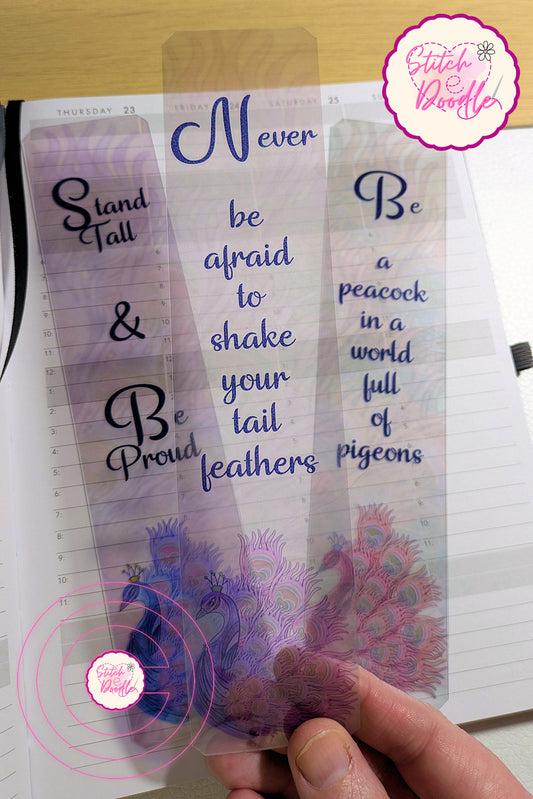 Stitch
e
Doodle
THURSDAY 23
FRIDAY 24
SATURDAY 25
Stand
Tall
&
Be
Proud
Never
be
afraid
to
shake
your
tail
feathers
Be
a
peacock
in a
world
full
of
pigeons
Stitch
e
Doodle